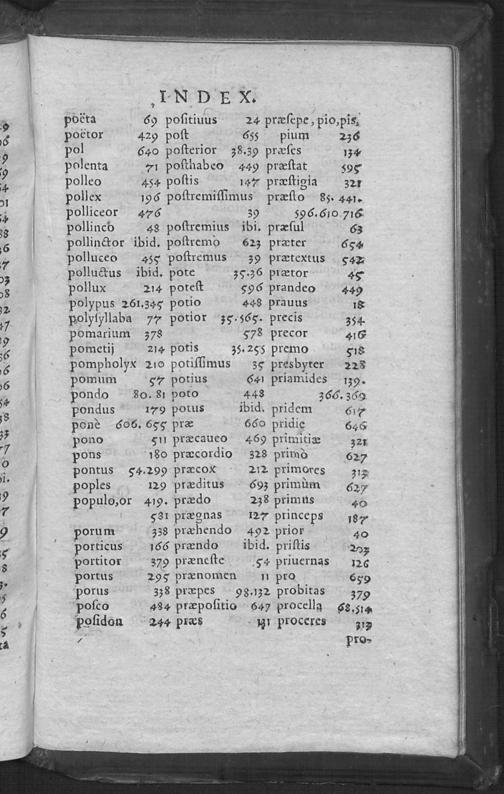 INDEX.
poëta 69
poëtor 429
pol 640
polenta 71
polleo 454
pollex 196
polliceor 476
pollincô 48
pollinctor ibid.
polluceo 455
polluctus ibid.
pollux 214
polypus 261.345
polysyllaba 77
pomarium 378
pometij 214
pompholyx 210
pomum 57
pondo 80. 81
pondus 179
ponè 606. 655
pono 511
pons 180
pontus 54.299
poples 129
populo,or 419.
581
porum 338
porticus 166
portitor 379
portus 295
porus 338
posco 484
posidon 244
positiuus 24
post 655
posterior 38.39
posthabeo 449
postis 147
postremissimus
39
postremius ibi.
postremò 623
postremus 39
pote 35.36
potest 596
potio 448
potior 35.565.
578
potis 35.255
potissimus 35
potius 641
poto 448
potus ibid.
præ 660
præcaueo 469
præcordio 328
præcox 212
præditus 693
prædo 238
prægnas 127
præhendo 492
prændo ibid.
præneste .54
prænomen 11
præpes 98.132
præpositio 647
præs 131
præsepe, pio,pis,
pium 236
præses 134
præstat 595
præstigia 321
præsto 85. 441.
596.610.716
præsul 63
præter 654
prætextus 542
prætor 45
prandeo 449
prauus 18
precis 354
precor 416
premo 518
presbyter 228
priamides 139.
366.369
pridem 617
pridie 646
primitiæ 321
primò 627
primores 313
primùm 627
primus 40
princeps 187
prior 40
pristis 203
priuernas 126
pro 659
probitas 379
procella 68.514
proceres 313
pro-